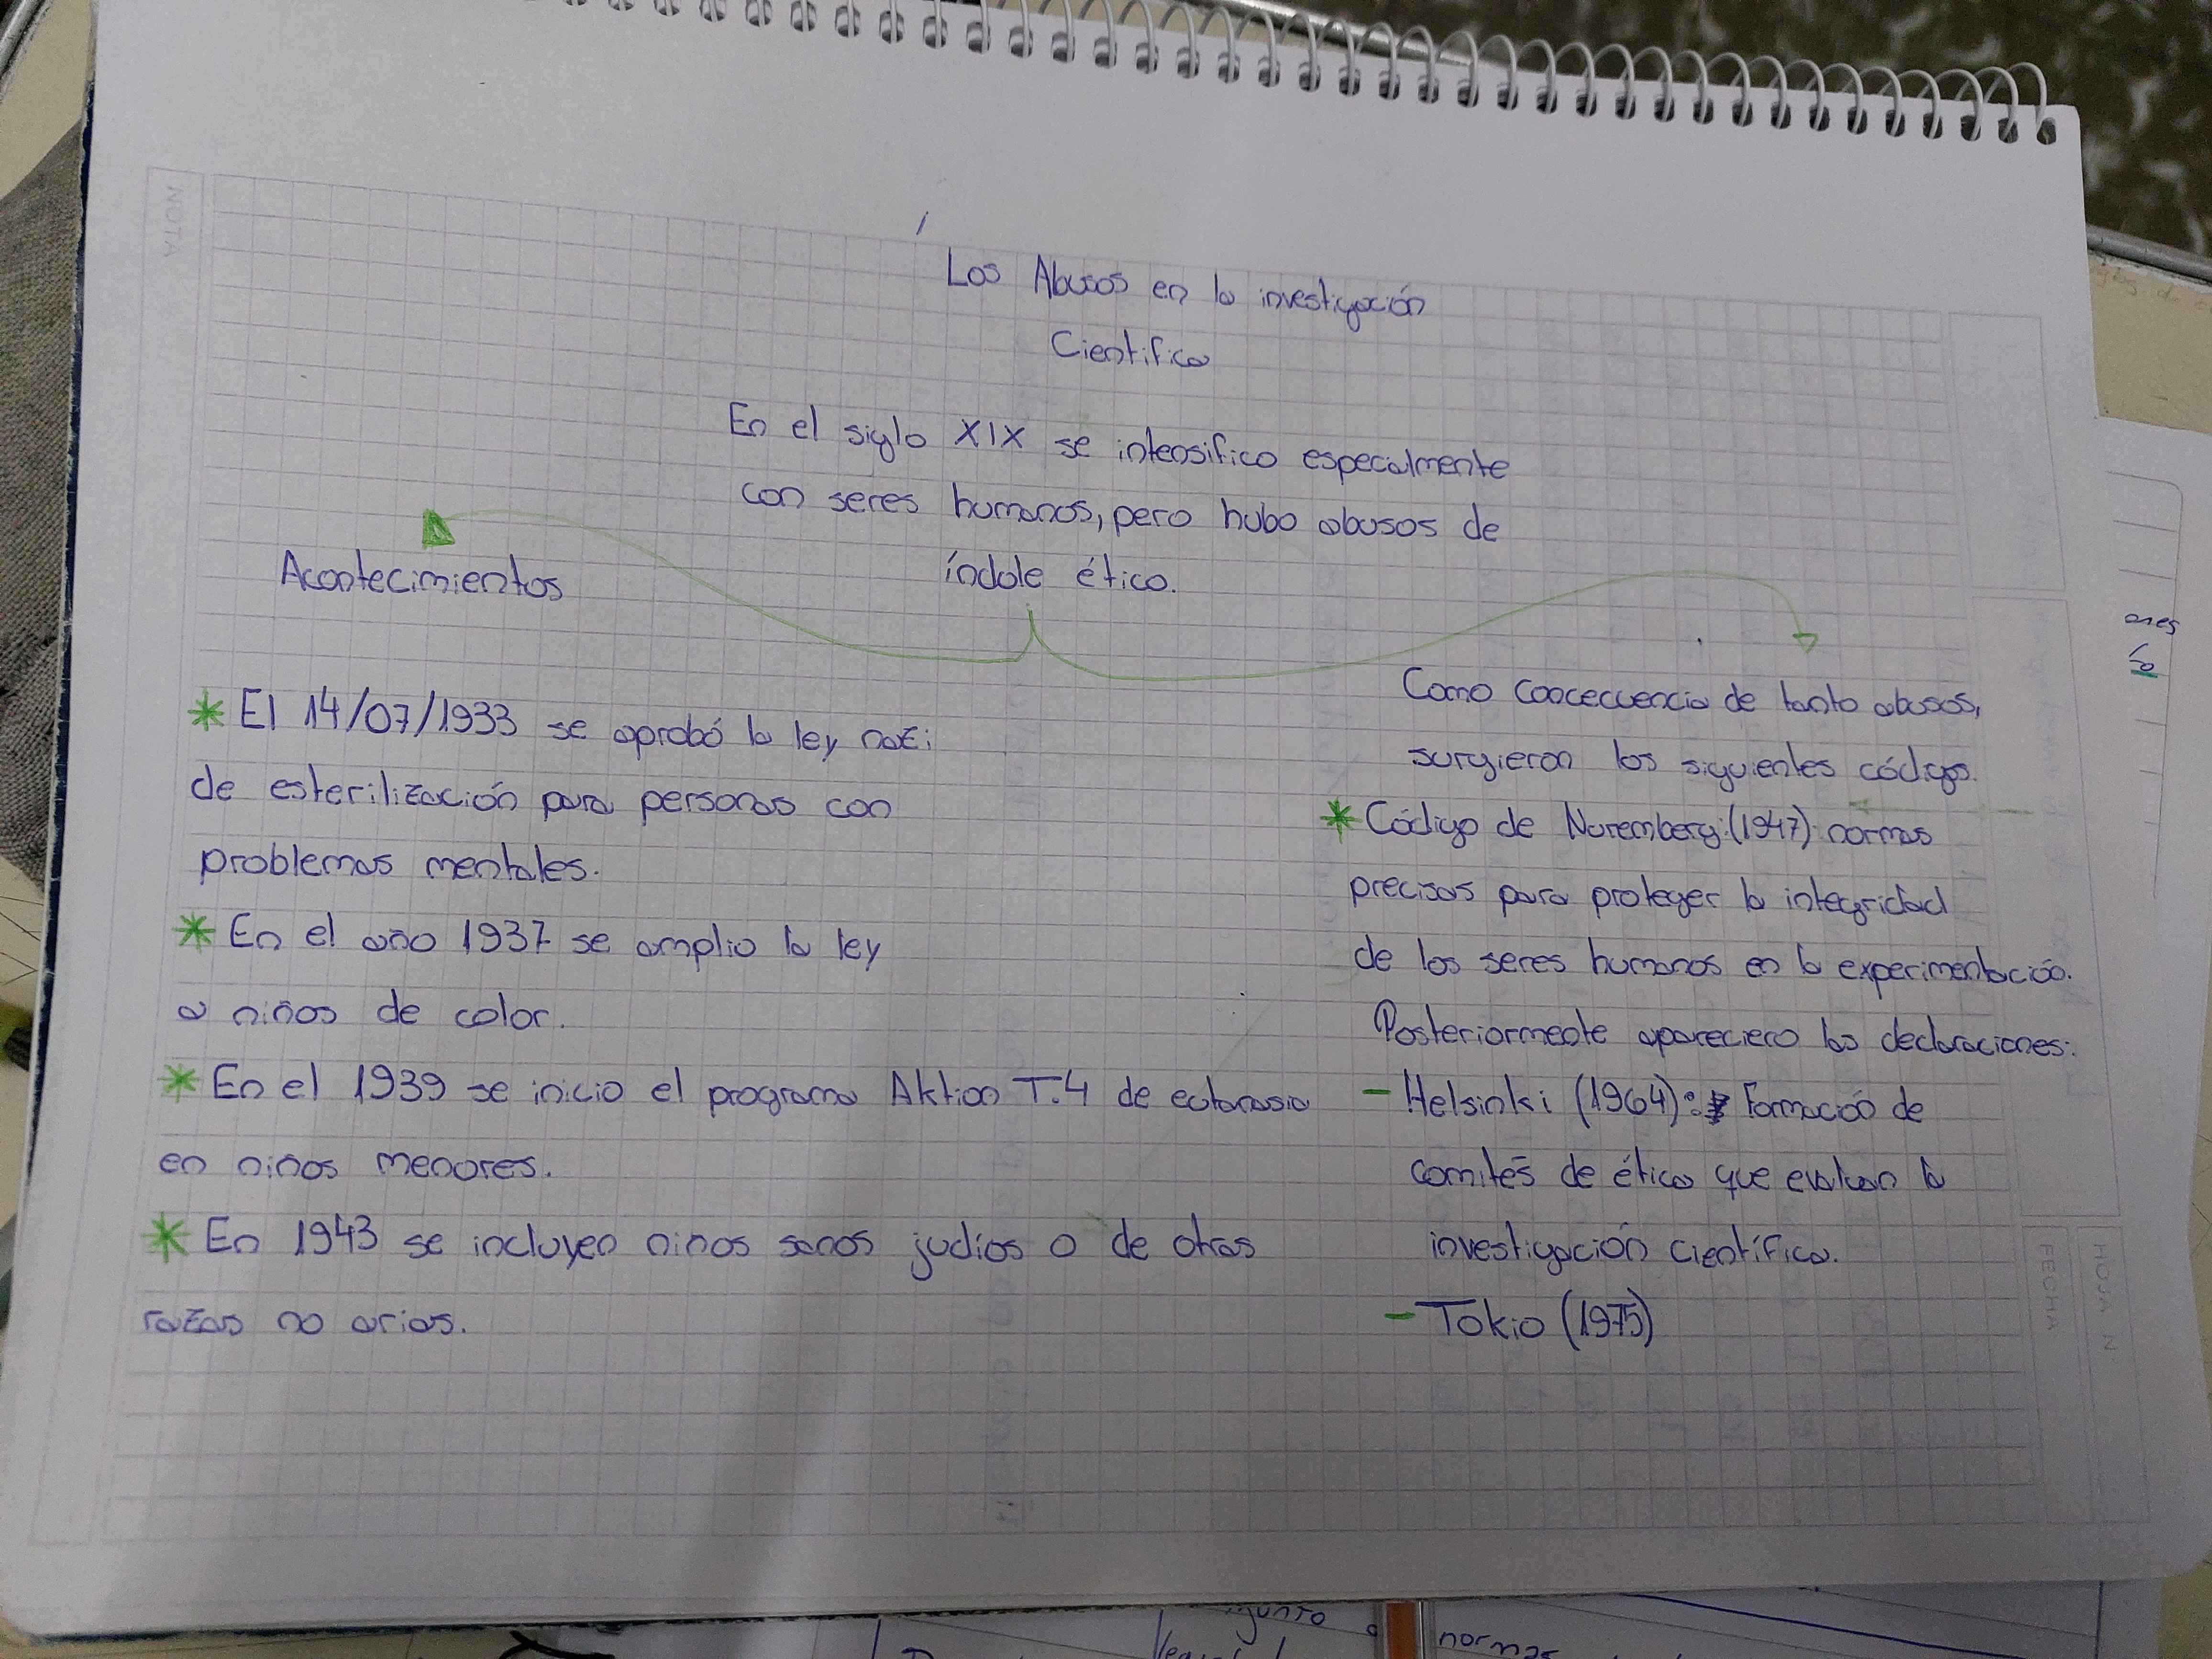 NOTA
Los Abusos en la investigación
Cientifica
En el siglo XIX se intensifico especialmente
con seres humanos, pero hubo abusos de
índole ético.
Acontecimientos
* El 14/07/1933 se aprobó la ley nazi
de esterilización para personas con
problemas mentales.
* En el año 1937 se amplio la ley
a niños de color.
* En el 1939 se inicio el programa Aktion T.4 de eutanasia
en niños menores.
* En 1943 se incluyen niños sanos judíos o de otras
razas no arias.
Como concecuencia de tanto abusos,
surgieron los siguientes códigos.
* Código de Nuremberg: (1947) normas
precisas para proteger la integridad
de los seres humanos en la experimentación.
Posteriormente apareciero las declaraciones:
- Helsinki (1964): Formación de
comités de ética que evaluan la
investigación científica.
- Tokio (1975)
HOJA N°
FECHA
ones
normas